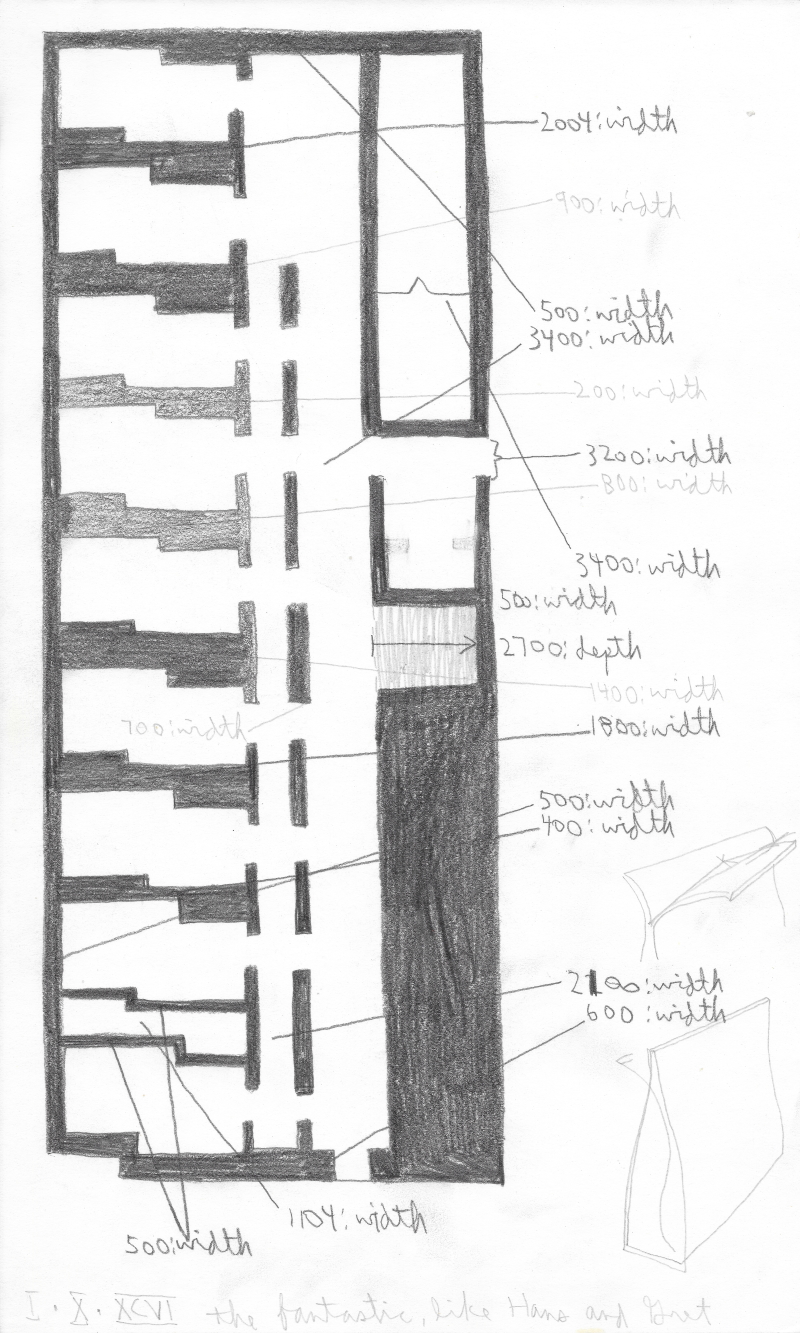 2004:width
900:width
500:width
3400:width
200:width
3200:width
800:width
3400:width
500:width
2700:depth
1400:width
700:width
1800:width
500:width
400:width
2100:width
600:width
1104:width
500:width
I·X·XCVI the fantastic, like Hans and Gret